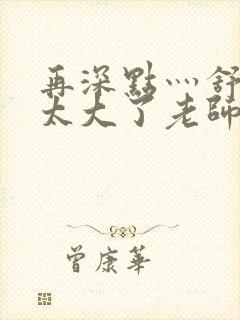 再深點灬舒
太大了老師
曾康華